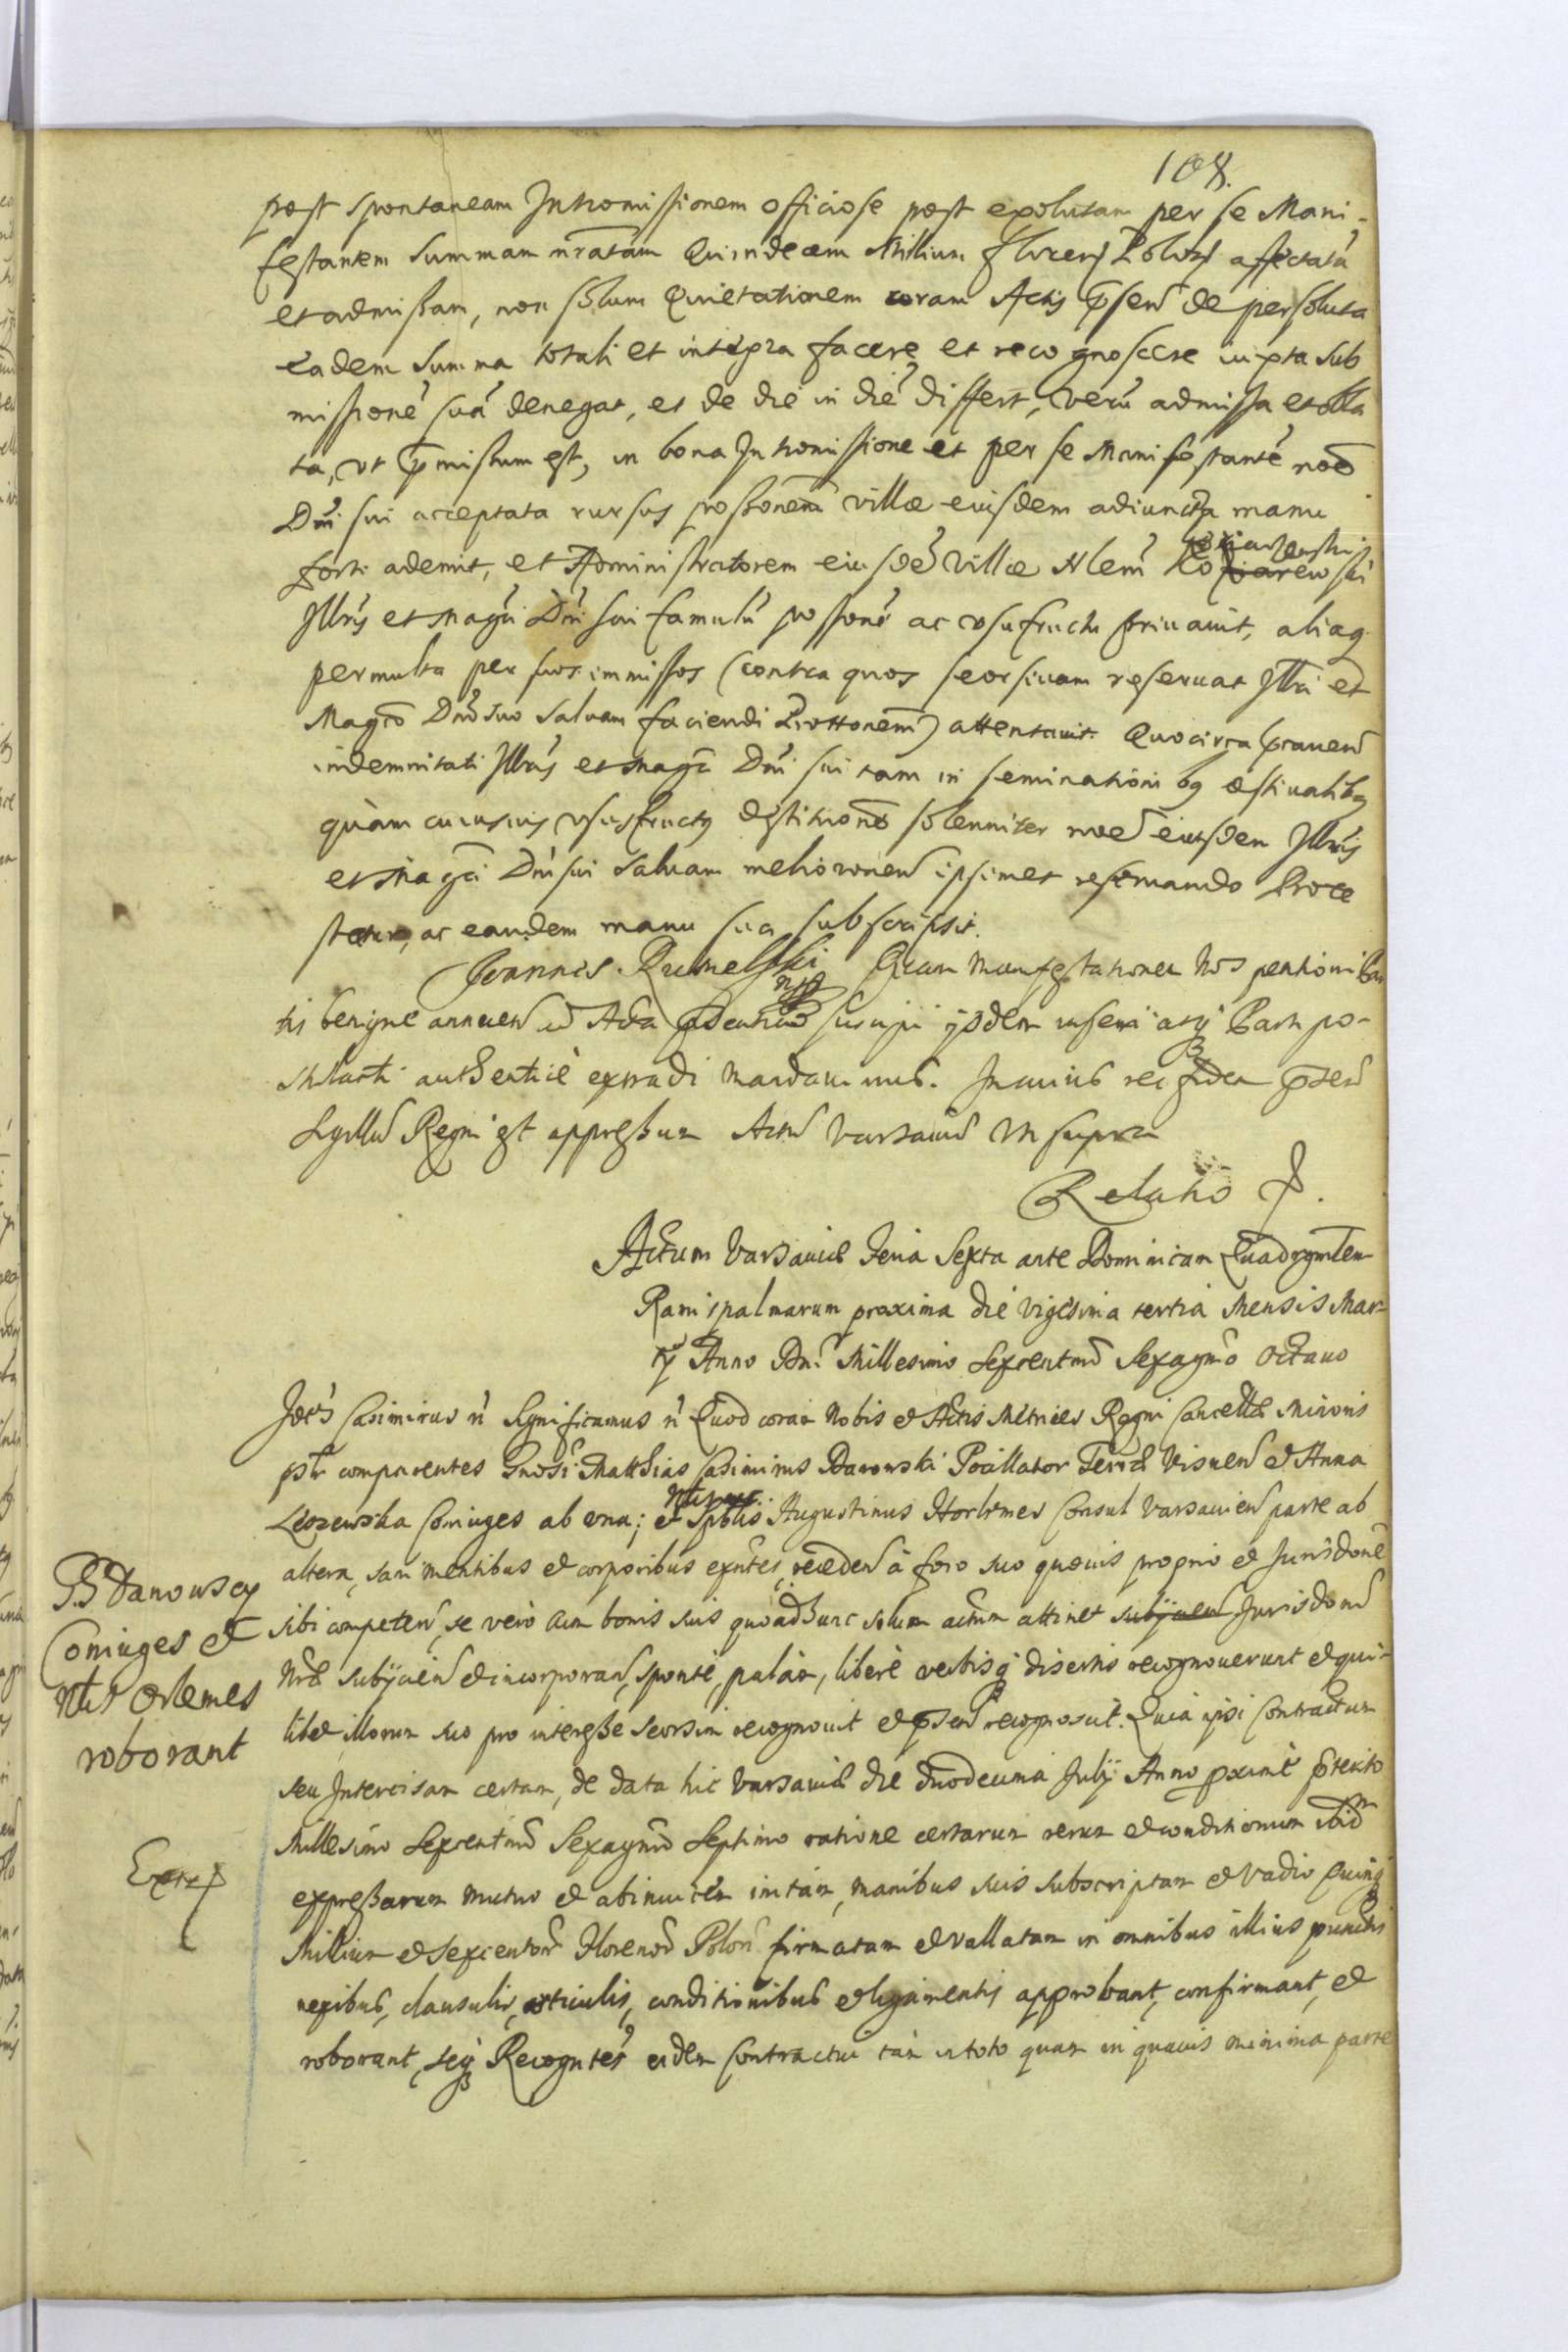 108.
post spontaneam Intromissionem officiose post exolutam per se Mani-
festantem Summam nratam Quindecem Millium floren Polon affectatã
et admissam, non solum Quietationem coram Actis p̃sen de persoluta
eadem Summa totali et integra facere et recognoscere iuxta sub
missionẽ suã denegat, et de die in diẽ differt, verũ admissa et obla
ta, ut p̃missum est, in bona Intromissione et per se Manifestantẽ noẽ
Dni sui acceptata rursus possonem villæ eiusdem adiuncta manu
forti ademit, et Administratorem eiusdẽ villæ Nlem
Illris et Magci Dni sui famulũ possonẽ ac usufructu privavit, aliaq
permulta per suos immissos (contra quos seorsivam reservat Illri et
Magco Dno suo salvam faciendi Prottonem) attentavit. Quocirca p̃caven
indemnitati Illris et Magci Dni sui tam in seminationibq æstivalibq
quàm cuiusvis ususfructq destitione solenniter noe eiusdem Illris
et Magci Dni sui salvam melioronem ipsimet reservando Prote
statur, ac eandem manu sua subscripsit.
Joannes Rumelski mp Quam Manifestationem Nos petitioni Par
tis benigne annuen ad Acta p̃dentium suscipi ijsdem inseri atq Parti po-
stulanti authenticè extradi mandavimus. In cuius rei fidem p̃sen
Sigillu Regni est appressum Actu Varsaviæ Ut supra
Relatio
Actum Varsaviæ Feria Sexta ante Dominicam Quadragmalem
Ramispalmarum proxima die vigesima tertia Mensis Mar-
tij Anno Dni Millesimo Sexcentmo Sexagmo Octavo
Joes Casimirus ñ Significamus ñ Quod coram Nobis et Actis Metrices Regni Cancellæ Minoris
psltr comparentes Gnosi Matthias Casimirus Danowski Pocillator Terræ Visnen et Anna
Leszewska Coniuges ab una; et Spblis Augustinus Horlemes Consul Varsavien parte ab
altera, sani mentibus et corporibus exñtes, receden à foro suo quovis proprio et Jurisdone
sibi competen, se vero cum bonis suis quoad hunc solum actum attinet subijcien Jurisdoni
Nræ subijcien et incorporan, sponte, palam, liberè verbisq disertis recognoverunt et qui-
libet illorum suo pro interesse seorsim recognovit et p̃sen recognoscit. Quia ipsi Contractum
seu Intercisam certam, de data hic Varsaviæ die duodecima Julij Anno pximè p̃terito
Millesimo Sexcentmo Sexagmo Septimo ratione certarum rerum et conditionum ibid
expressarum mutuo et ab invicem initam, manibus suis subscriptam et vadio Quinq
Millium et sexcentor Florenor Polon firmatam et vallatam in omnibus illius punctis
nexibus, clausulis, articulis, conditionibus et ligamentis approbant, confirmant, et
roborant, seq Recogntes eidem Contractui tam in toto quam in quavis minima parte
G.G Danowscy
Coniuges et
Ntus Orlemes
roborant
Extr